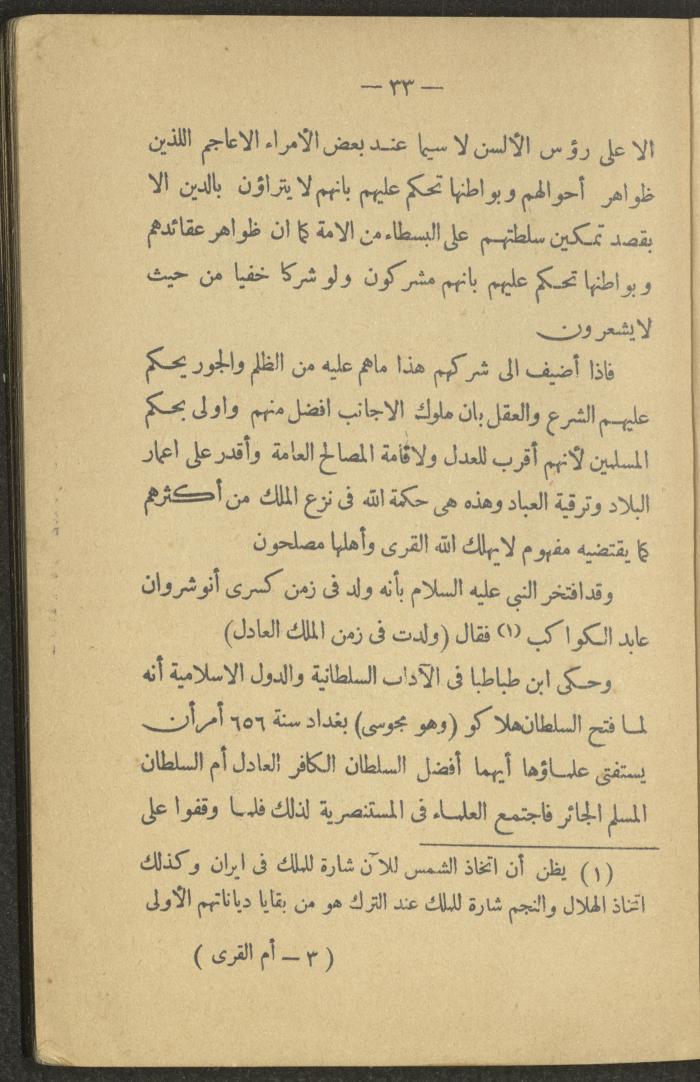 — ٣٣ —
الا على رؤس الألسن لا سيما عند بعض الأمراء الاعاجم اللذين
ظواهر أحوالهم وبواطنها تحكم عليهم بانهم لا يتراؤن بالدين الا
بقصد تمكين سلطتهم على البسطاء من الامة كما ان ظواهر عقائدهم
وبواطنها تحكم عليهم بانهم مشركون ولو شركا خفيا من حيث
لا يشعرون
فاذا أضيف الى شركهم هذا ماهم عليه من الظلم والجور يحكم
عليهم الشرع والعقل بان ملوك الاجانب افضل منهم واولى بحكم
المسلمين لأنهم أقرب للعدل ولاقامة المصالح العامة وأقدر على اعمار
البلاد وترقية العباد وهذه هى حكمة الله فى نزع الملك من أكثرهم
كما يقتضيه مفهوم لايهلك الله القرى وأهلها مصلحون
وقد افتخر النبي عليه السلام بأنه ولد فى زمن كسرى أنوشروان
عابد الكواكب (١) فقال (ولدت فى زمن الملك العادل)
وحكى ابن طباطبا فى الآداب السلطانية والدول الاسلامية أنه
لما فتح السلطان هلاكو (وهو مجوسى) بغداد سنة ٦٥٦ أمر أن
يستفتى علماؤها أيهما أفضل السلطان الكافر العادل أم السلطان
المسلم الجائر فاجتمع العلماء فى المستنصرية لذلك فلما وقفوا على
(١) يظن أن اتخاذ الشمس للآن شارة للملك فى ايران وكذلك
اتخاذ الهلال والنجم شارة للملك عند الترك هو من بقايا دياناتهم الأولى
(٣ — أم القرى)